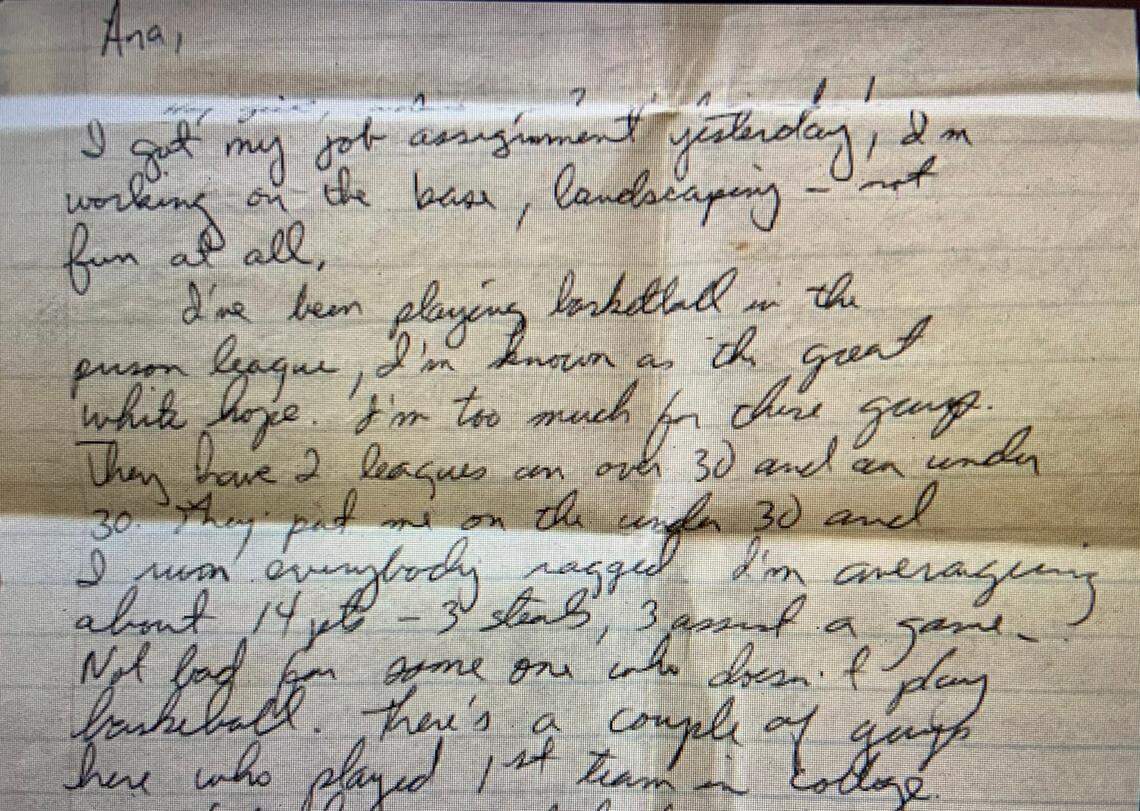 Ana,
I got my job assignment yesterday, I'm
working on the base, landscaping – not
fun at all,
I've been playing basketball in the
prison league, I'm known as the great
white hope. I'm too much for these guys.
They have 2 leagues an over 30 and an under
30. They put me on the under 30 and
I run everybody ragged I'm averageing
about 14 pts – 3 steals, 3 assist a game –
Not bad for some one who doesn't play
basketball. There's a couple of guys
here who played 1st team in college.